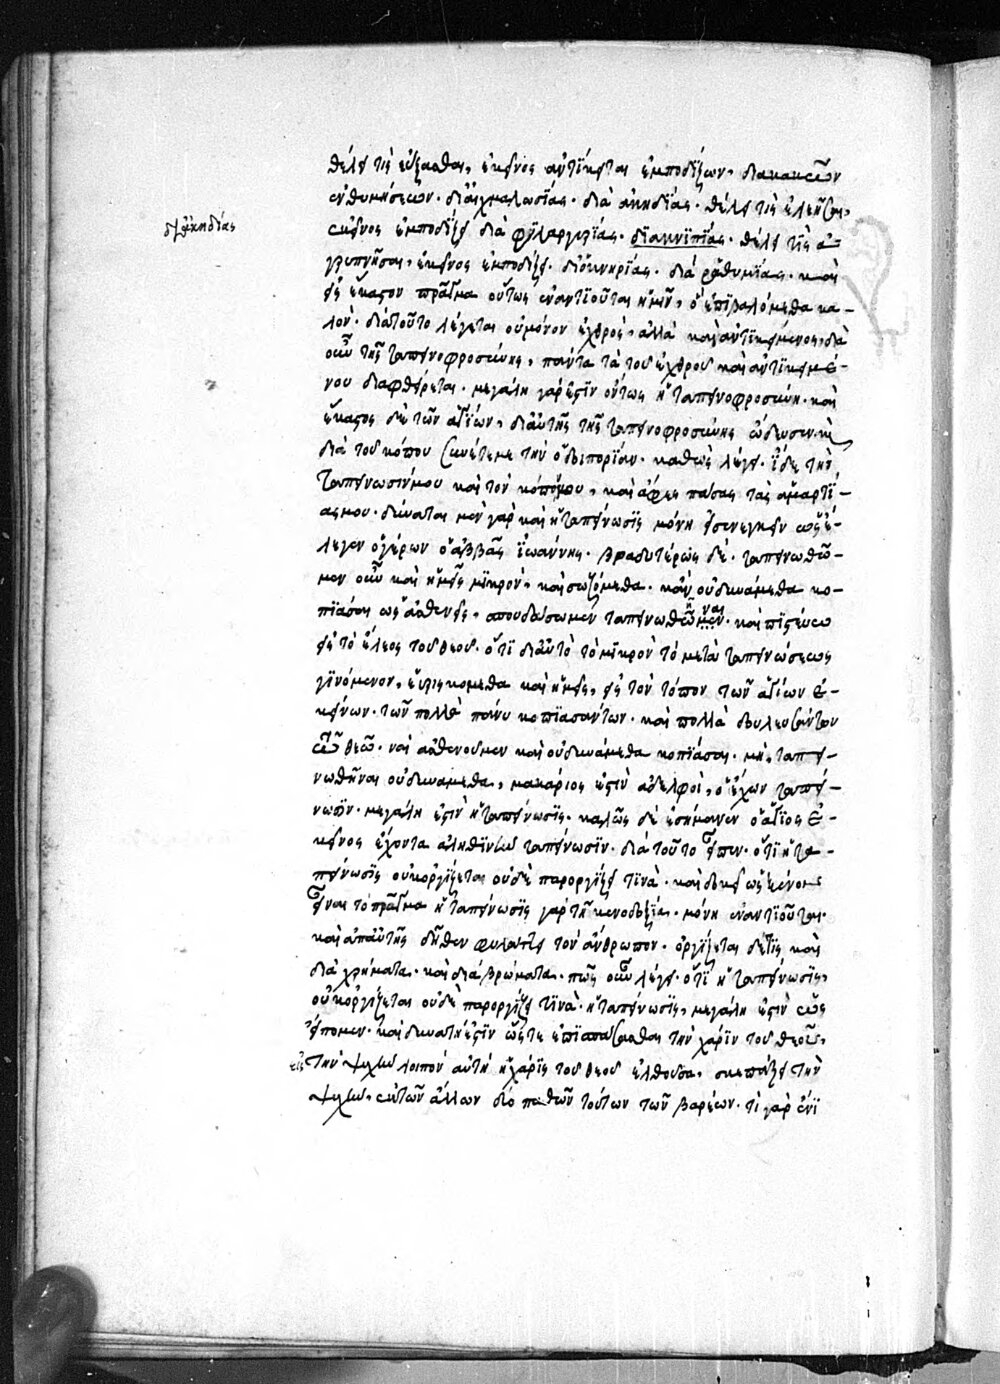 δι' ἀκηδίας
θέλει τίς εὔξασθαι, ἐκεῖνος ἀντίκειται ἐμποδίζων, διὰ κακῶν
ἐνθυμήσεων· δι' αἰχμαλωσίας· διὰ ἀκηδίας· θέλει τίς ἐλεῆσαι,
ἐκεῖνος ἐμποδίζει διὰ φιλαργυρίας· διὰ κνιπίας· θέλει τίς ἀ-
γρυπνῆσαι, ἐκεῖνος ἐμποδίζει· δι' ὀκνηρίας· διὰ ῥαθυμίας· καὶ
εἰς ἕκαστον πρᾶγμα οὕτως ἐναντιοῦται ἡμῖν, ὃ ἐπιβαλόμεθα κα-
λόν· διατοῦτο λέγεται οὐ μόνον ἐχθρός, ἀλλὰ καὶ ἀντικείμενος, διὰ
οὖν τῆς ταπεινοφροσύνης, πάντα τὰ τοῦ ἐχθροῦ καὶ ἀντικειμέ-
νου διαφθείρεται· μεγάλη γάρ ἐστιν ὄντως ἡ ταπεινοφροσύνη· καὶ
ἕκαστος δὲ τῶν ἁγίων, δι' αὐτῆς τῆς ταπεινοφροσύνης ὥδευσεν· καὶ
διὰ τοῦ κόπου συνέτεμε τὴν ὁδοιπορίαν· καθὼς λέγει· ἴδε τὴν
ταπείνωσίν μου καὶ τὸν κόπον μου, καὶ ἄφες πάσας τὰς ἁμαρτί-
ας μου· δύναται μὲν γὰρ καὶ ἡ ταπείνωσις μόνη εἰσενεγκεῖν ὡς ἔ-
λεγεν ὁ γέρων ὁ ἀββᾶς ἰωάννης· βραδυτέρως δέ· ταπεινωθῶ-
μεν οὖν καὶ ἡμεῖς μικρὸν, καὶ σωζόμεθα· κἂν οὐ δυνάμεθα κο-
πιάσαι ὡς ἀσθενεῖς, σπουδάσωμεν ταπεινωθῆναι· καὶ πιστεύω
εἰς τὸ ἔλεος τοῦ θεοῦ· ὅτι δι' αὐτὸ τὸ μικρὸν τὸ μετὰ ταπεινώσεως
γινόμενον, εὑρισκόμεθα καὶ ἡμεῖς, εἰς τὸν τόπον τῶν ἁγίων ἐ-
κείνων· τῶν πολλὰ πάνυ κοπιασάντων· καὶ πολλὰ δουλευσάντων
τῷ θεῷ· ναὶ ἀσθενοῦμεν καὶ οὐ δυνάμεθα κοπιάσαι· μὴ, ταπει-
νωθῆναι οὐ δυνάμεθα, μακάριος ἐστὶν ἀδελφοὶ, ὁ ἔχων ταπεί-
νωσιν· μεγάλη ἐστὶν ἡ ταπείνωσις· καλῶς δὲ ἐσήμανεν ὁ ἅγιος ἐ-
κεῖνος ἔχοντα ἀληθινὴν ταπείνωσιν· διὰ τοῦτο εἶπεν· ὅτι ἡ τα-
πείνωσις οὐκ ὀργίζεται οὐδὲ παροργίζει τινὰ· καὶ δοκεῖ ὡς ξένον
εἶναι τὸ πρᾶγμα ἡ ταπείνωσις γὰρ τῇ κενοδοξία· μόνη ἐναντιοῦται·
καὶ ἀπ' αὐτῆς δῆθεν φυλάττει τὸν ἄνθρωπον· ὀργίζεται δέ τις καὶ
διὰ χρήματα· καὶ διὰ βρώματα· πῶς οὖν λέγει· ὅτι ἡ ταπείνωσις,
οὐκ ὀργίζεται οὐδὲ παροργίζει τινὰ· ἡ ταπείνωσις, μεγάλη ἐστὶν ὡς
εἴπομεν· καὶ δυνατή ἐστιν ὥστε ἐπισπάσασθαι τὴν χάριν τοῦ θεοῦ,
εἰς τὴν ψυχὴν λοιπὸν αὐτὴ ἡ χάρις τοῦ θεοῦ ἐλθοῦσα, σκεπάζει τὴν
ψυχὴν, ἐκ τῶν ἄλλων δύο παθῶν τούτων τῶν βαρέων· τί γάρ ἐνι